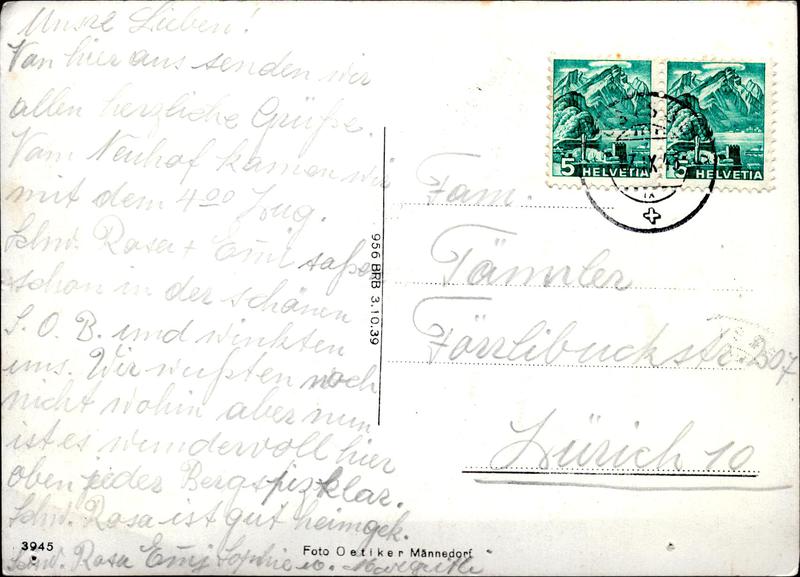 Unsre Lieben!
Von hier aus senden wir
allen herzliche Grüße.
Vom Neuhof kamen wir
mit dem 4⁰⁰ Zug.
Schw. Rosa + Emj saßen
schon in der schönen
S.O.B. und winkten
uns. Wir wußten noch
nicht wohin aber nun
ist es wundervoll hier
oben jeder Bergspiz klar.
Schw. Rosa ist gut heimgek.
Schw. Rosa Emj Sophie u. Margrithli
3945
Foto Oetiker Männedorf
956 BRB 3.10.39
5 HELVETIA
5 HELVETIA
Fam.
Förrlibuckstr. 207
Zürich 10